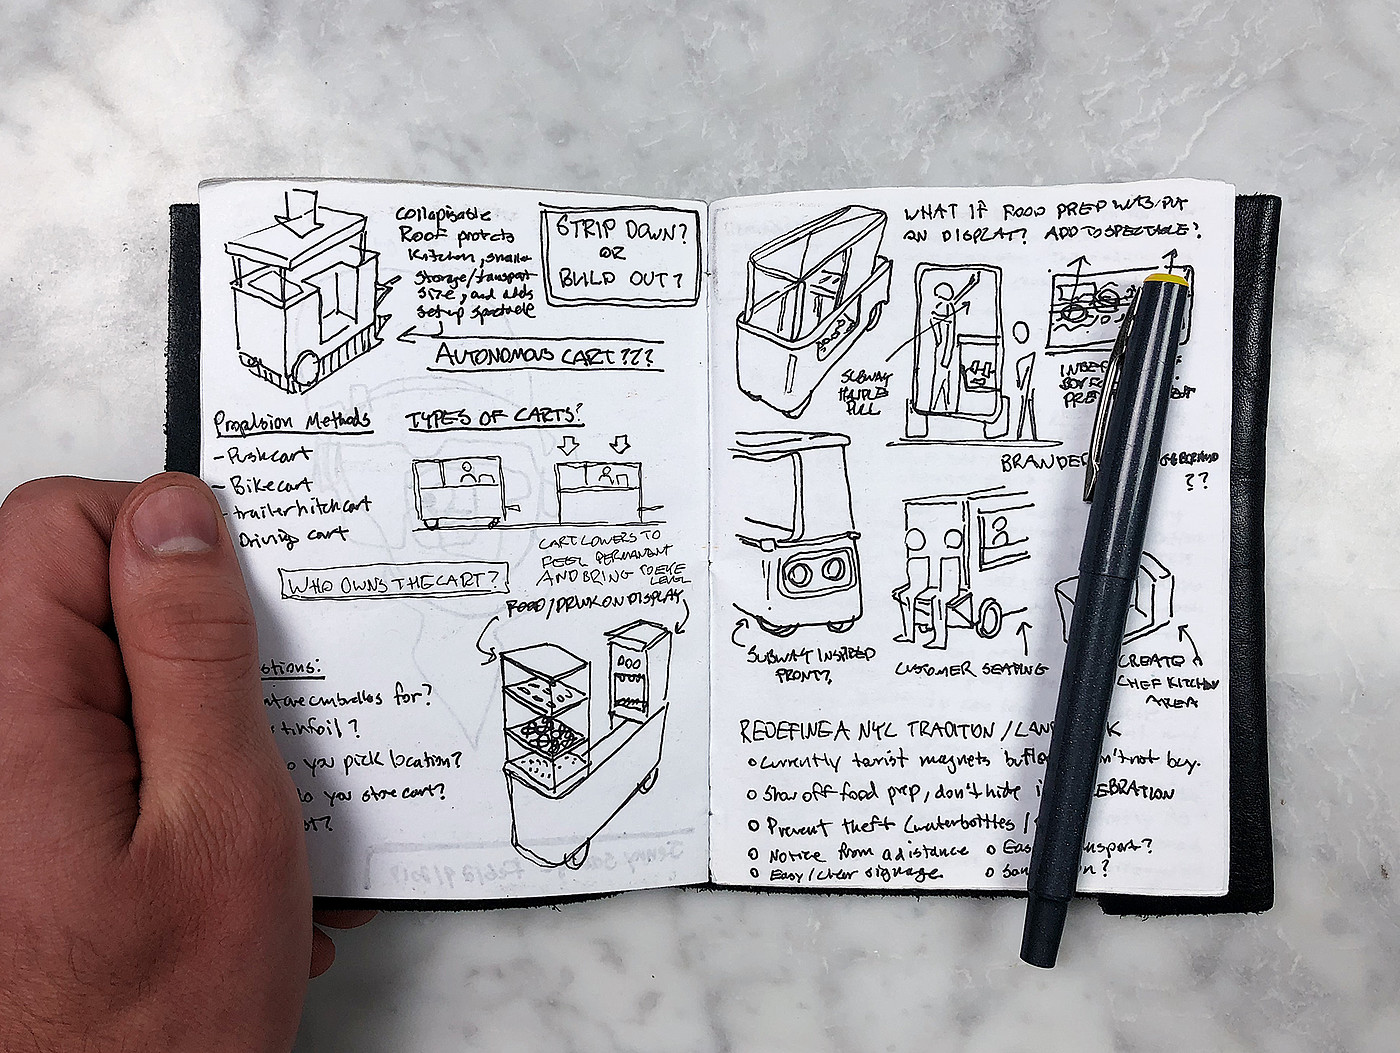 Collapisable
Roof protects
Kitchen, smaller
storage/transport
size, and adds
setup spectacle
STRIP DOWN?
OR
BUILD OUT?
AUTONOMOUS CART???
Propulsion Methods
- Pushcart
- Bike cart
- trailer hitch cart
Driving cart
TYPES OF CARTS?
CART LOWERS TO
FEEL PERMANENT
AND BRING TO EYE
LEVEL
WHO OWNS THE CART?
FOOD/DRINK ON DISPLAY
stions:
umbrellas for?
tinfoil?
you pick location?
you store cart?
WHAT IF FOOD PREP WAS PUT
ON DISPLAY? ADD TO SPECTACLE?
SUBWAY
PULL
BRANDED
??
SUBWAY INSPIRED
FRONT?
CUSTOMER SEATING
CREATE A
CHEF KITCHEN
AREA
REDEFINE A NYC TRADITION / LAN K
o Currently tourist magnets but n't buy.
o Show off food prep, don't hide i EBRATION
o Prevent theft (waterbottles /
o Notice from a distance o Eas nsport?
o Easy/clear signage o n?